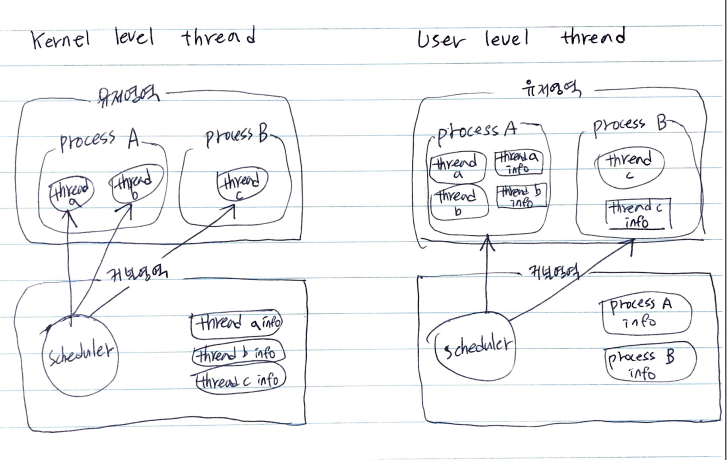 Kernel level thread
유저영역
process A
thread
a
thread
b
process B
thread
c
커널영역
scheduler
thread a info
thread b info
thread c info
User level thread
유저영역
process A
thread
a
thread a
info
thread
b
thread b
info
process B
thread
c
thread c
info
커널영역
scheduler
process A
info
process B
info